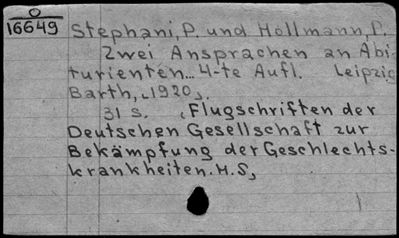 0
16649
Stephani, P. und Hollmann, P.
Zwei Ansprachen an Abi-
turienten... 4-te Aufl. Leipzig
Barth, "1920".
31 S. „Flugschriften der
Deutschen Gesellschaft zur
Bekämpfung der Geschlechts-
krankheiten. H. S„